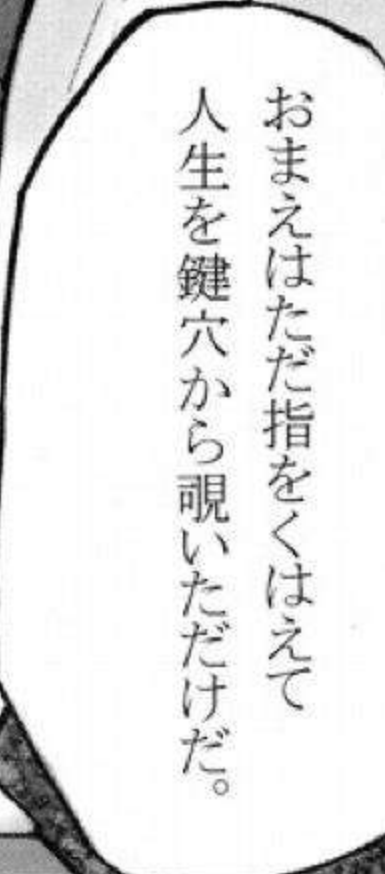 おまえはただ指をくはえて
人生を鍵穴から覗いただけだ。